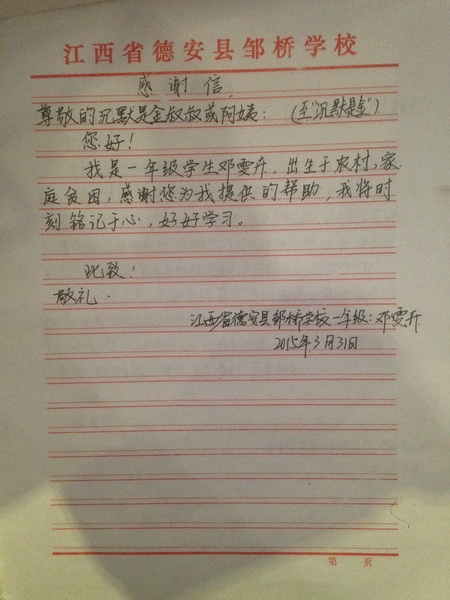 江西省德安县邹桥学校
感谢信
尊敬的沉默是金叔叔或阿姨：（至“沉默是金”）
您好！
我是一年级学生邓雯卉，出生于农村，家
庭贫困，感谢您为我提供的帮助，我将时
刻铭记于心，好好学习。
此致！
敬礼．
江西省德安县邹桥学校一年级：邓雯卉
2015年3月31日
第 页